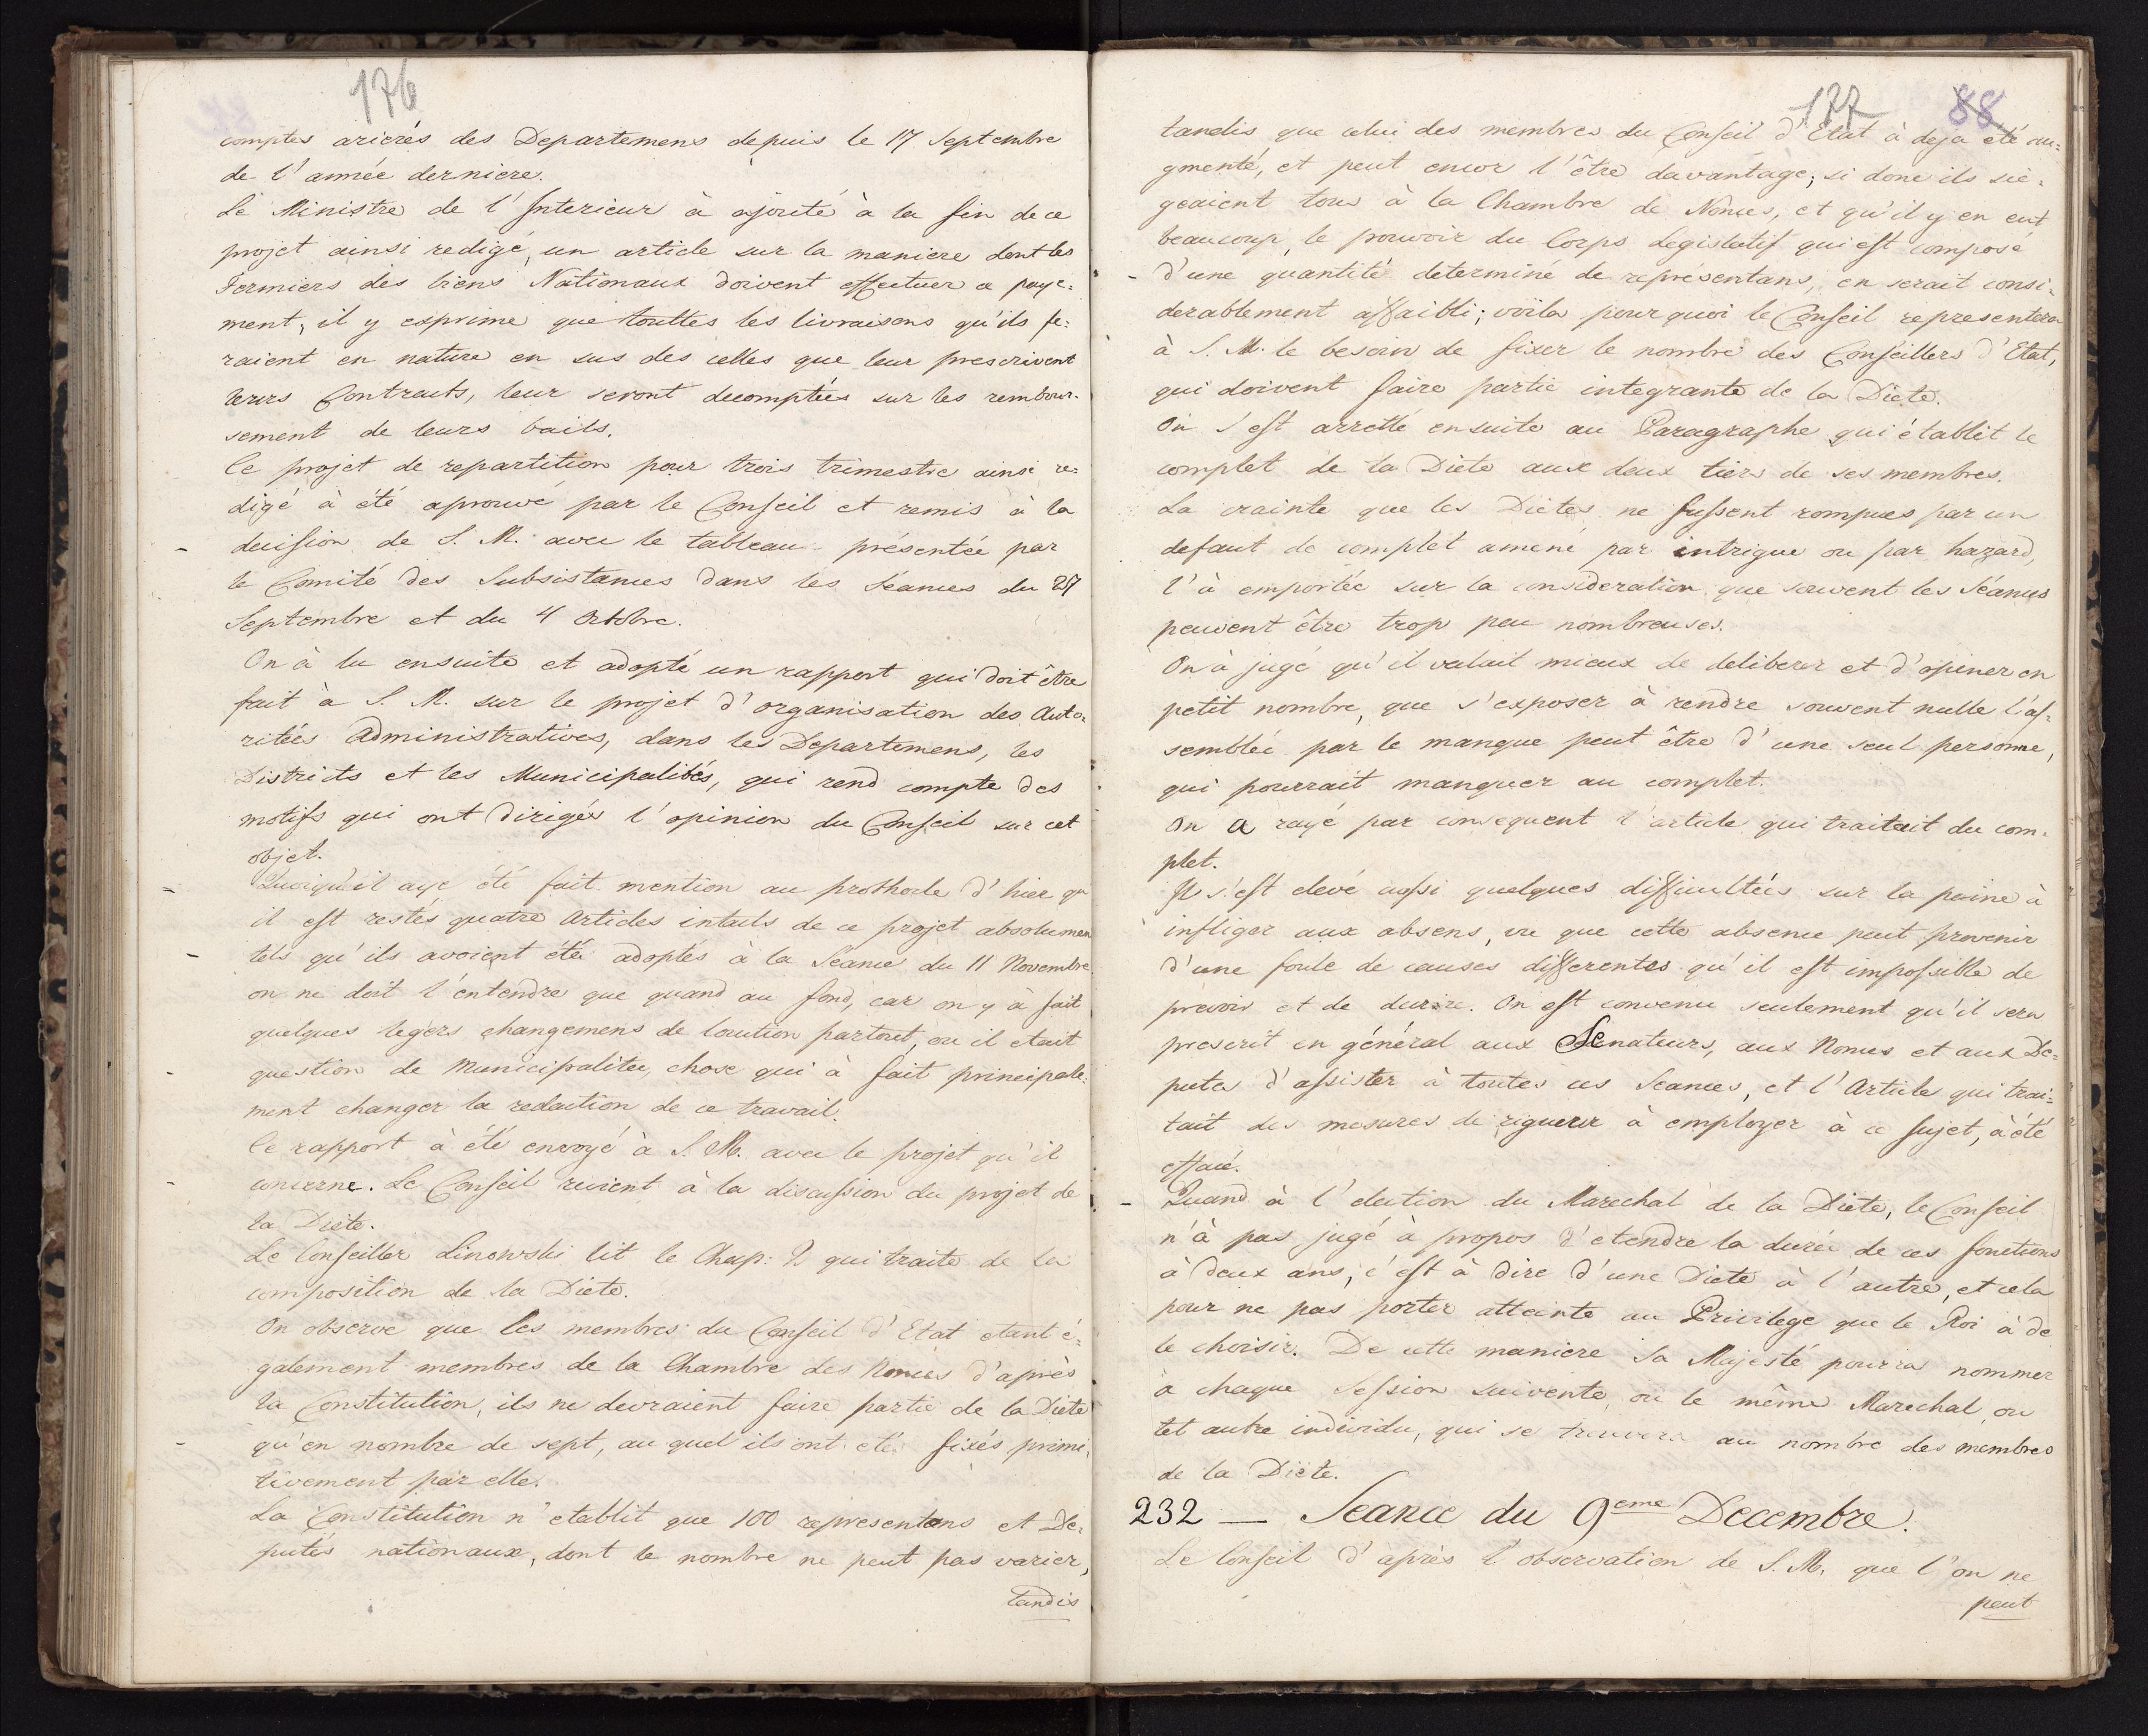 176
comptes arierés des Departemens depuis le 17 Septembre
de l'année derniere.
Le Ministre de l'Interieur à ajouté à la fin de ce
projet ainsi redigé, un article sur la maniere dont les
Fermiers des biens Nationaux doivent effectuer ce paye=
ment, il y exprime que touttes les livraisons qu'ils fe=
raient en nature en sus des celles que leur prescrivent
leurs Contracts, leur seront decomptées sur les rembour-
sement de leurs bails.
Ce projet de repartition pour trois trimestre ainsi re=
digé à été aprouvé par le Conseil et remis à la
decision de S. M. avec le tableau présentée par
le Comité des Subsistances dans les Séances du 27
Septembre et du 4 Octobre.
On à lu ensuite et adopté un rapport qui doit être
fait à S. M. sur le projet d'organisation des Auto=
ritées Administratives, dans les Departemens, les
Districts et les Municipalités, qui rend compte des
motifs qui ont dirigés l'opinion du Conseil sur cet
objet.
Quoiqu'il aye été fait mention au prothocle d'hier qu
il est restés quatre articles intacts de ce projet absolumen
tels qu'ils avoient étés adoptés à la Séance du 11 Novembre
on ne doit l'entendre que quand au fond, car on y à fait
quelques legers changemens de locution partout, ou il etait
question de Municipalitee, chose qui à fait principale=
ment changer la redaction de ce travail.
Ce rapport à été envoyé à S. M. avec le projet qu'il
concerne. Le Conseil revient à la discussion du projet de
la Diete.
Le Conseiller Linowski lit le Chap: 2 qui traite de la
composition de la Diete.
On observe que les membres du Conseil d'Etat etant é=
galement membres de la Chambre des Nonces d'après
la Constitution, ils ne devraient faire partie de la Diete
qu'en nombre de sept, au quel ils ont étés fixés primi=
tivement par elle.
La Constitution n'etablit que 100 representans et De=
putés nationaux, dont le nombre ne peut pas varier,
tandis
177 88
tandis que celui des membres du Conseil d'Etat à deja été au=
gmenté, et peut encor l'être davantage; si donc ils sie=
geaient tous à la Chambre de Nonces, et qu'il y en eut
beaucoup, le pouvoir du Corps Legislatif qui est composé
d'une quantité determiné de représentans, en serait consi=
derablement affaibli; voila pourquoi le Conseil representera
à S. M. le besoin de fixer le nombre des Conseillers d'Etat,
qui doivent faire partie integrante de la Diete.
On s'est arretté ensuite au Paragraphe qui établit le
complet de la Diete aux deux tiers de ses membres.
La crainte que les Dietes ne fussent rompues par un
defaut de complet amené par intrigue ou par hazard,
l'à emportée sur la consideration que souvent les Séances
peuvent être trop peu nombreuses.
On à jugé qu'il valait mieux de deliberer et d'opiner en
petit nombre, que s'exposer à rendre souvent nulle l'as=
semblée par le manque peut être d'une seul personne,
qui pourrait manquer au complet.
On a rayé par consequent l'article qui traitait du com=
plet.
Il s'est elevé aussi quelques difficultées sur la peine à
infliger aux absens, vu que cette absence peut provenir
d'une foule de causes differentes qu'il est impossible de
prevoir et de decrire. On est convenu seulement qu'il sera
prescrit en général aux Senateurs, aux Nonces et aux De=
putes d'assister à toutes ces Seances, et l'Article qui trai=
tait des mesures de riguerer à employer à ce sujet, à été
effacé.
Quand à l'election du Marechal de la Diete, le Conseil
n'à pas jugé à propos d'etendre la durée de ces fonctions
à deux ans, c'est à dire d'une Diete à l'autre, et cela
pour ne pas porter atteinte au Privilege que le Roi à de
le choisir. De cette maniere Sa Majesté pourra nommer
à chaque Session suivente, ou le même Marechal, ou
tel autre individu, qui se trouvera au nombre des membres
de la Diete.
232 — Seance du 9eme Decembre.
Le Conseil d'après l'observation de S. M. que l'on ne
peut